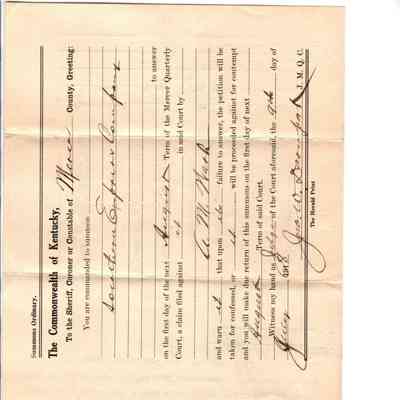 Summons Ordinary.
The Commonwealth of Kentucky,
To the Sheriff, Coroner or Constable of Mercer County, Greeting:
You are commanded to summon
Southern Express Company
to answer
on the first day of the next August Term of the Mercer Quarterly
Court, a claim filed against it in said Court by
A. M. Wash
and warn it that upon its failure to answer, the petition will be
taken for confessed, or it will be proceeded against for contempt
and you will make due return of this summons on the first day of next
August Term of said Court.
Witness my hand as Judge of the Court aforesaid, the 9th day of
July 1918
Geo. W. J. M. Q. C.
The Herald Print